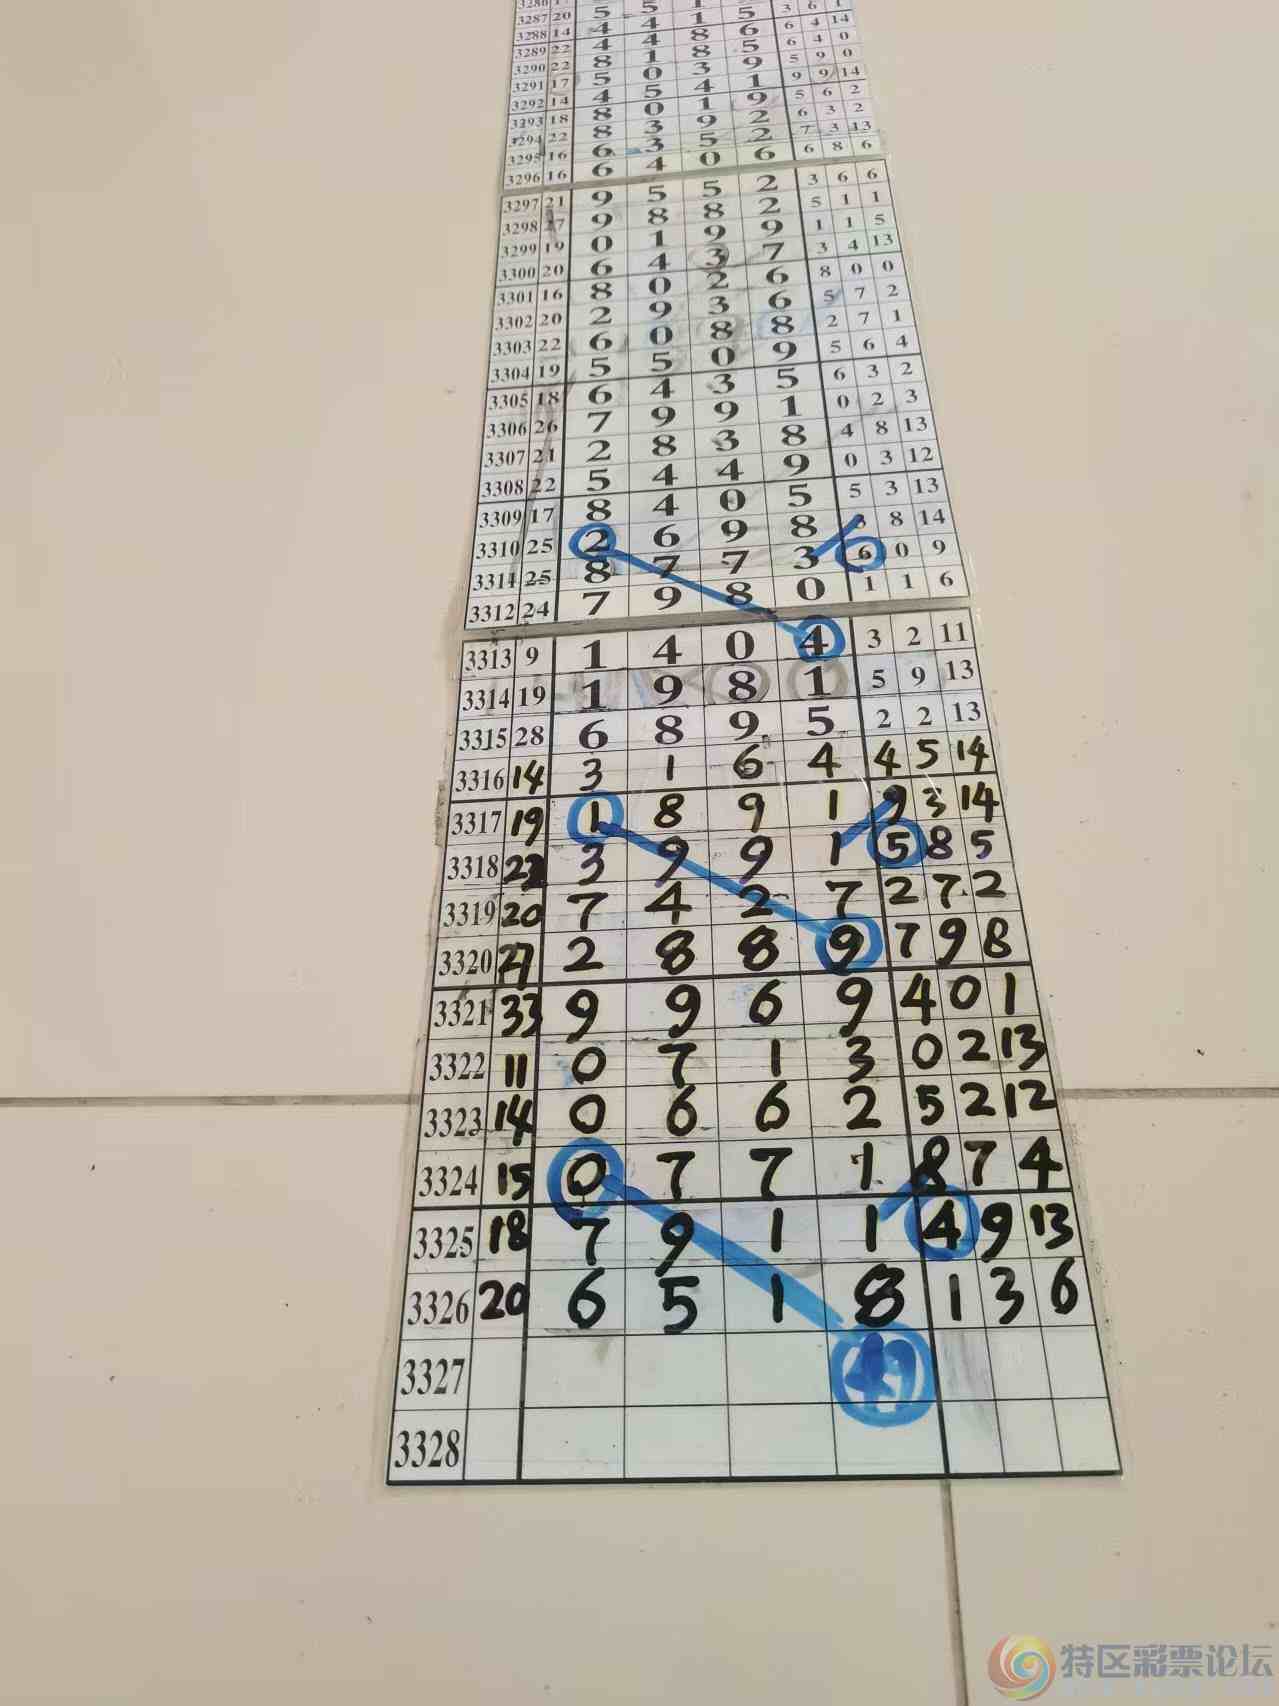 3287 20 5 5 1 5 3 6 1
3288 14 4 4 1 5 6 4 14
3289 22 4 4 8 6 6 4 0
3290 22 8 1 8 5 5 9 0
3291 17 5 0 3 9 9 9 14
3292 14 4 5 4 1 5 6 2
3293 18 8 0 1 9 6 3 2
3294 22 8 3 9 2 7 3 13
3295 16 6 3 5 2 6 8 6
3296 16 6 4 0 6
3297 21 9 5 5 2 3 6 6
3298 27 9 8 8 2 5 1 1
3299 19 0 1 9 9 1 1 5
3300 20 6 4 3 7 3 4 13
3301 16 8 0 2 6 8 0 0
3302 20 2 9 3 6 5 7 2
3303 22 6 0 8 8 2 7 1
3304 19 5 5 0 9 5 6 4
3305 18 6 4 3 5 6 3 2
3306 26 7 9 9 1 0 2 3
3307 21 2 8 3 8 4 8 13
3308 22 5 4 4 9 0 3 12
3309 17 8 4 0 5 5 3 13
3310 25 2 6 9 8 3 8 14
3311 25 8 7 7 3 6 0 9
3312 24 7 9 8 0 1 1 6
3313 9 1 4 0 4 3 2 11
3314 19 1 9 8 1 5 9 13
3315 28 6 8 9 5 2 2 13
3316 14 3 1 6 4 4 5 14
3317 19 1 8 9 1 9 3 14
3318 22 3 9 9 1 5 8 5
3319 20 7 4 2 7 2 7 2
3320 27 2 8 8 9 7 9 8
3321 33 9 9 6 9 4 0 1
3322 11 0 7 1 3 0 2 13
3323 14 0 6 6 2 5 2 12
3324 15 0 7 7 1 8 7 4
3325 18 7 9 1 1 4 9 13
3326 20 6 5 1 8 1 3 6
3327 49
3328
特区彩票论坛